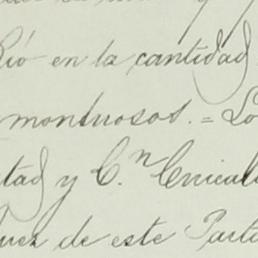 Rió en la cantidad
montuosos. = Lo
tad y C.n Enical
Juez de este Parti